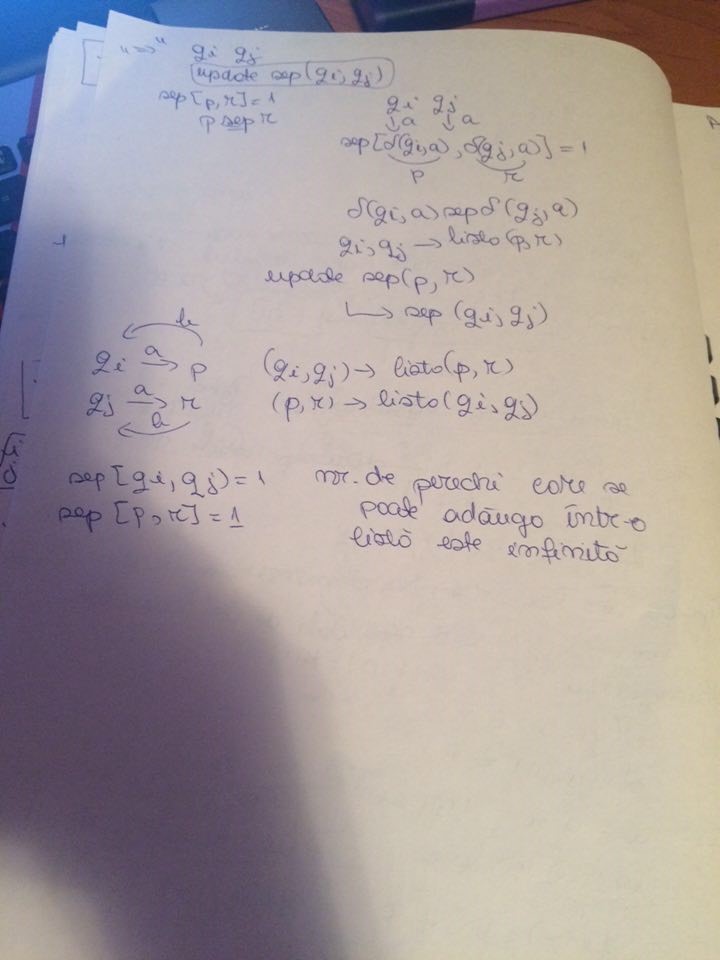 "=>" qi qj
update sep(qi, qj)
sep[p,r]=1
p sep r
qi qj
↓a ↓a
sep[δ(qi,a), δ(qj,a)]=1
p r
δ(qi,a) sep δ(qj,a)
qi, qj → lista(p,r)
update sep(p,r)
↳ sep (qi, qj)
b
qi a→ p (qi,qj) → lista(p,r)
qj a→ r (p,r) → lista(qi,qj)
b
sep[qi, qj)=1 nr. de perechi care se
sep [p,r]=1 poate adăuga într-o
listă este infinită